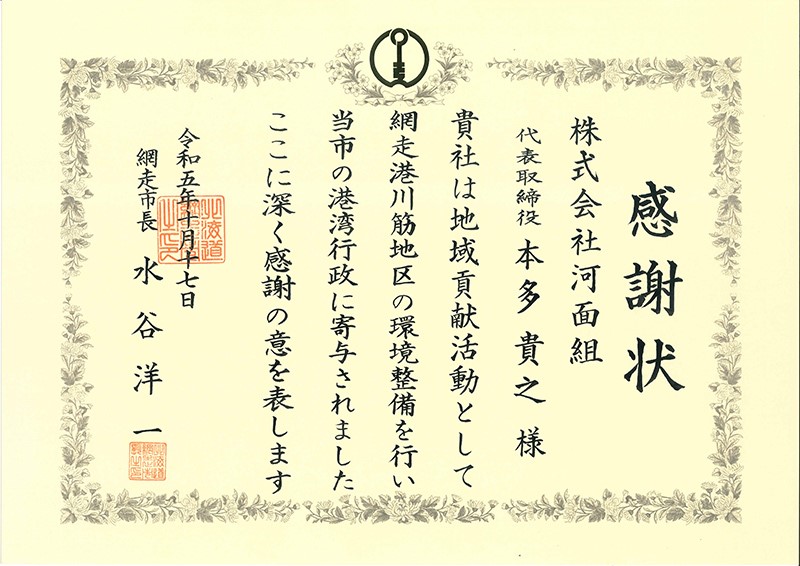 感謝状
株式会社河面組
代表取締役 本多貴之 様
貴社は地域貢献活動として
網走港川筋地区の環境整備を行い
当市の港湾行政に寄与されました
ここに深く感謝の意を表します
令和五年十月十七日
網走市長 水谷洋一